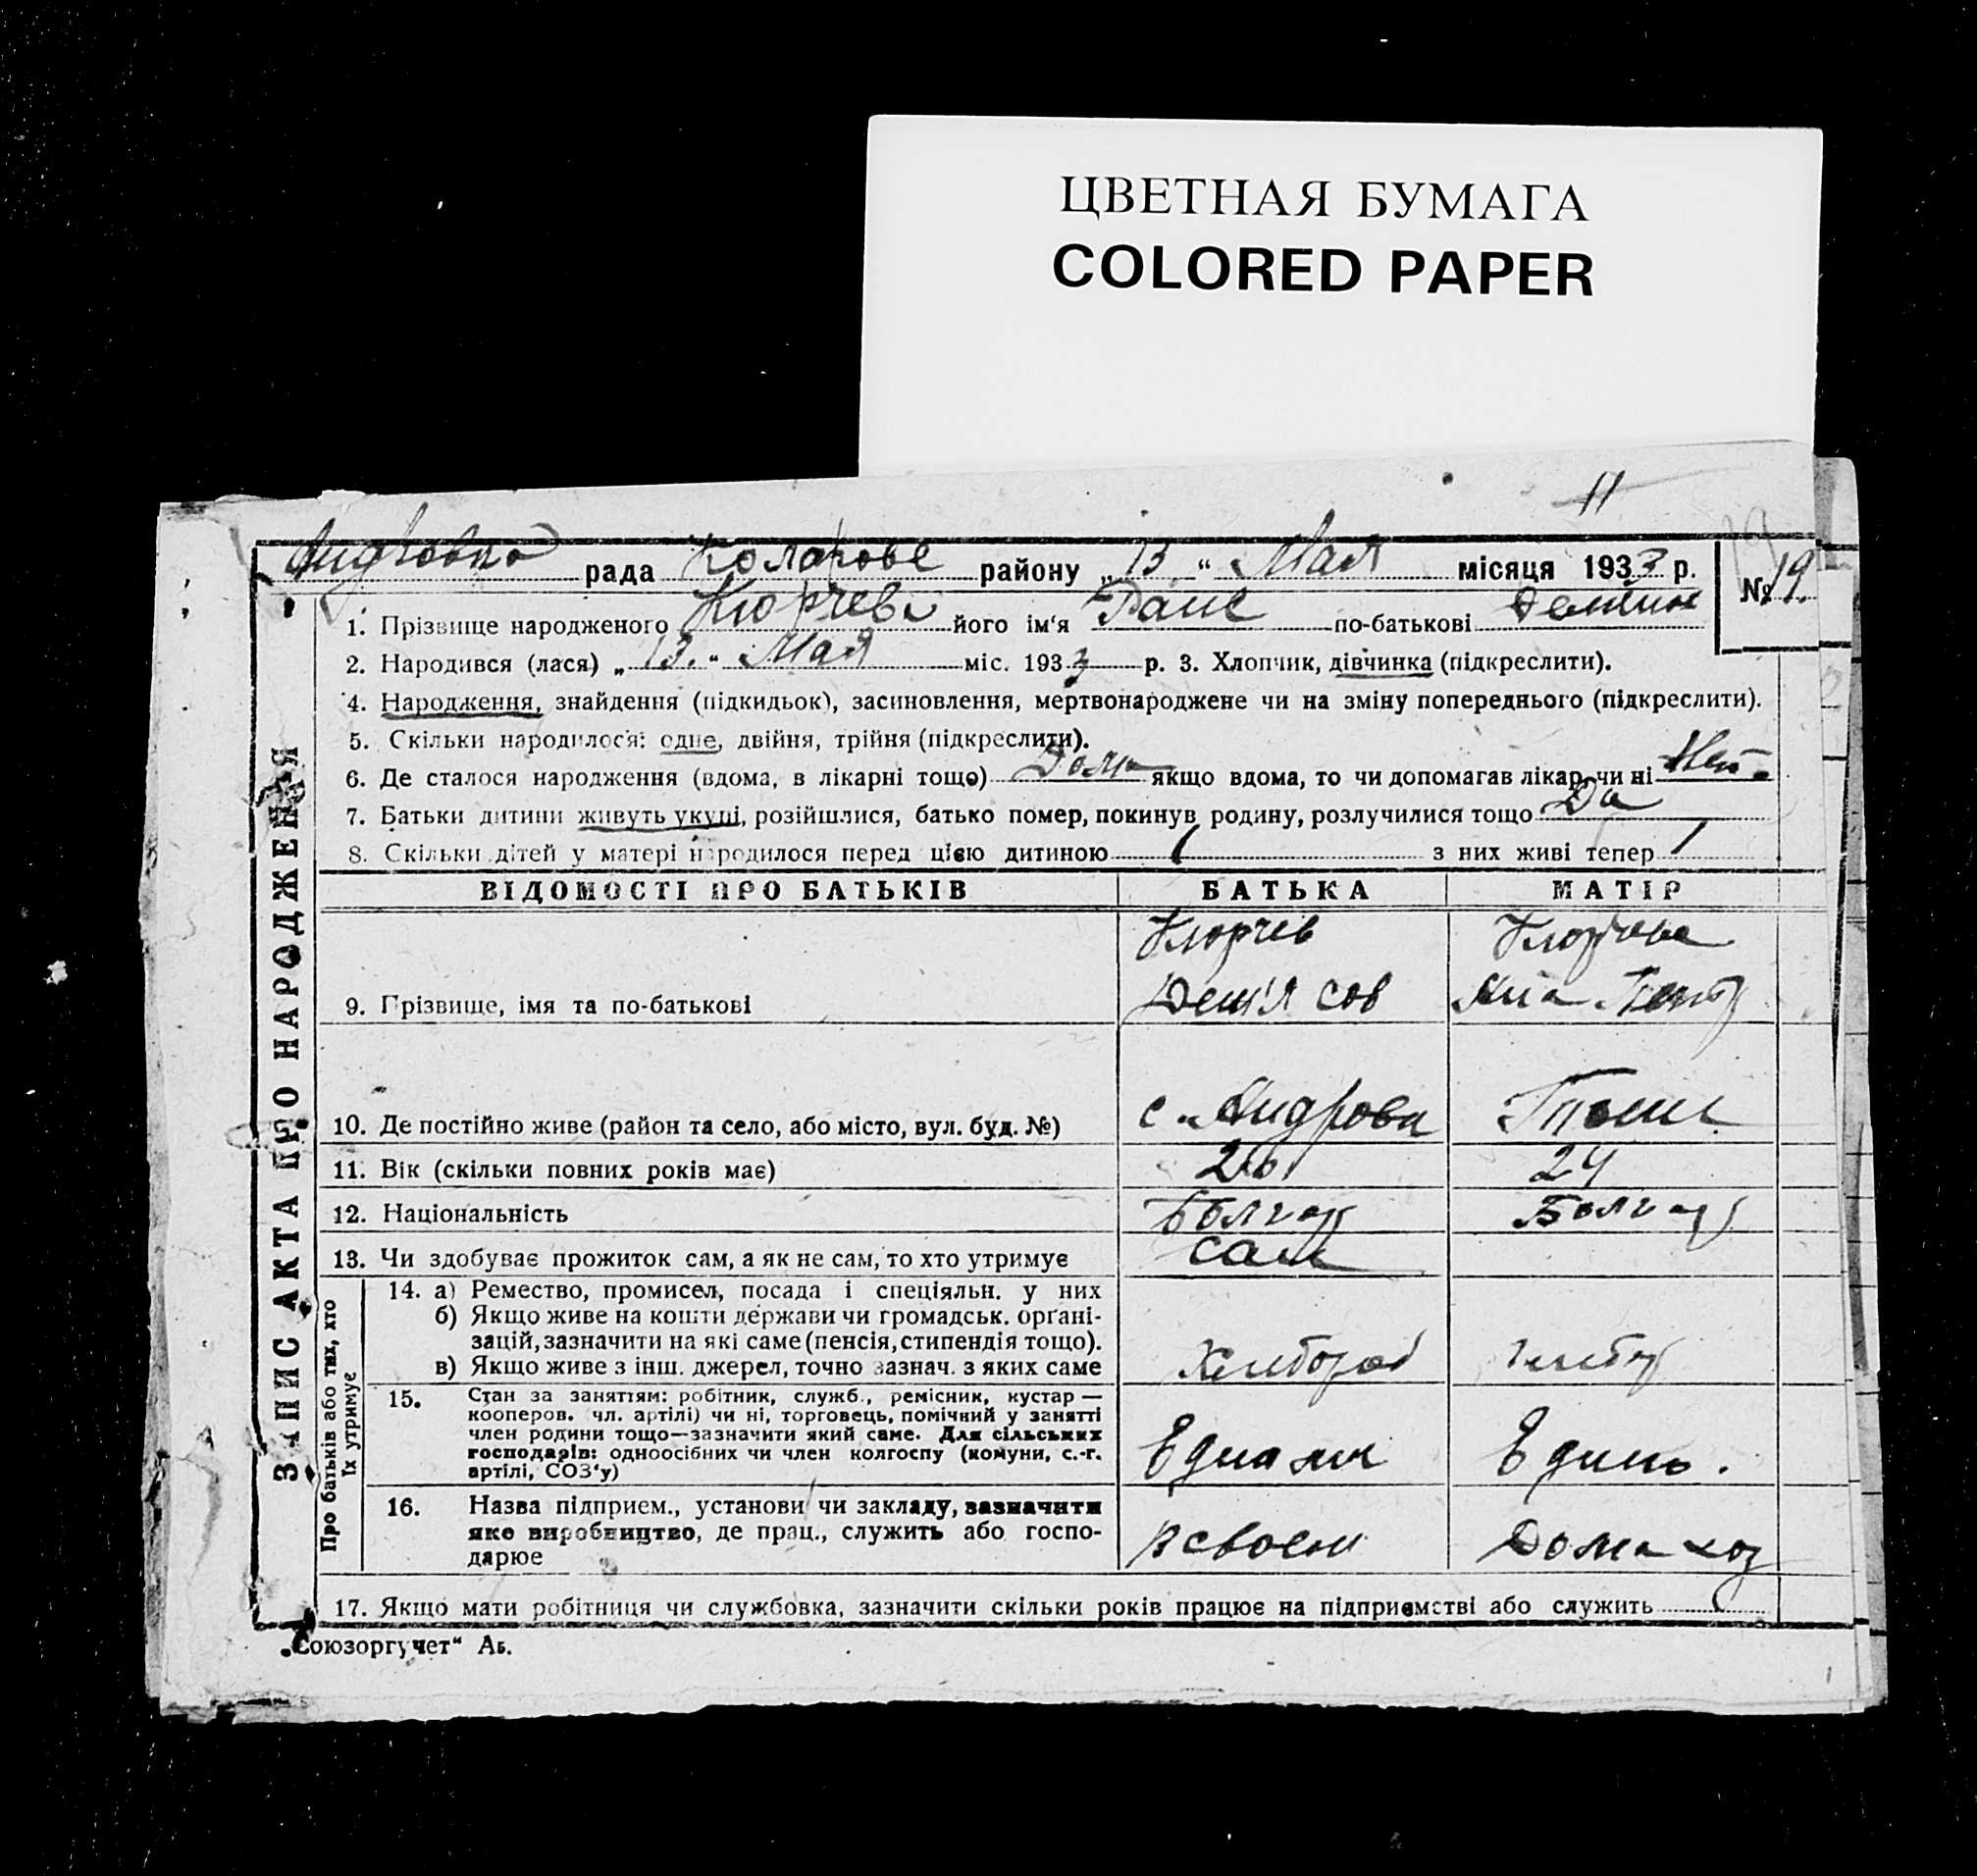 ЦВЕТНАЯ БУМАГА
COLORED PAPER
11
рада Коларове району „13“ Мая місяця 1933 р.
№ 19.
1. Прізвище народженого Кюрчева його ім'я по-батькові
2. Народився (лася) „13.“ Мая міс. 1933 р. 3. Хлопчик, дівчинка (підкреслити).
4. Народження, знайдення (підкидьок), засиновлення, мертвонароджене чи на зміну попереднього (підкреслити).
5. Скільки народилося: одне, двійня, трійня (підкреслити).
6. Де сталося народження (вдома, в лікарні тощо) Дома якщо вдома, то чи допомагав лікар, чи ні Нет
7. Батьки дитини живуть укупі, розійшлися, батько помер, покинув родину, розлучилися тощо Да
8. Скільки дітей у матері народилося перед цією дитиною 1 з них живі тепер 1
ЗАПИС АКТА ПРО НАРОДЖЕННЯ
ВІДОМОСТІ ПРО БАТЬКІВ БАТЬКА МАТІР
Кюрчев Кюрчева
9. Прізвище, імя та по-батькові
10. Де постійно живе (район та село, або місто, вул. буд. №) с.
11. Вік (скільки повних років має) 26 24
12. Національність Болгар Болгар
13. Чи здобуває прожиток сам, а як не сам, то хто утримує сам
Про батьків або тих, хто
їх утримує
14. а) Ремество, промисел, посада і спеціяльн. у них
б) Якщо живе на кошти держави чи громадськ. органі-
зацій, зазначити на які саме (пенсія, стипендія тощо).
в) Якщо живе з інш. джерел, точно зазнач. з яких саме
15. Стан за заняттям: робітник, служб., ремісник, кустар —
кооперов. чл. артілі) чи ні, торговець, помічний у занятті
член родини тощо—зазначити який саме. Для сільських
господарів: одноосібних чи член колгоспу (комуни, с.-г.
артілі, СОЗ'у)
16. Назва підприєм., установи чи закладу, зазначити
яке виробництво, де прац., служить або госпо-
дарює в своем Дома хоз
17. Якщо мати робітниця чи службовка, зазначити скільки років працює на підприємстві або служить
„Союзоргучет“ Аб.